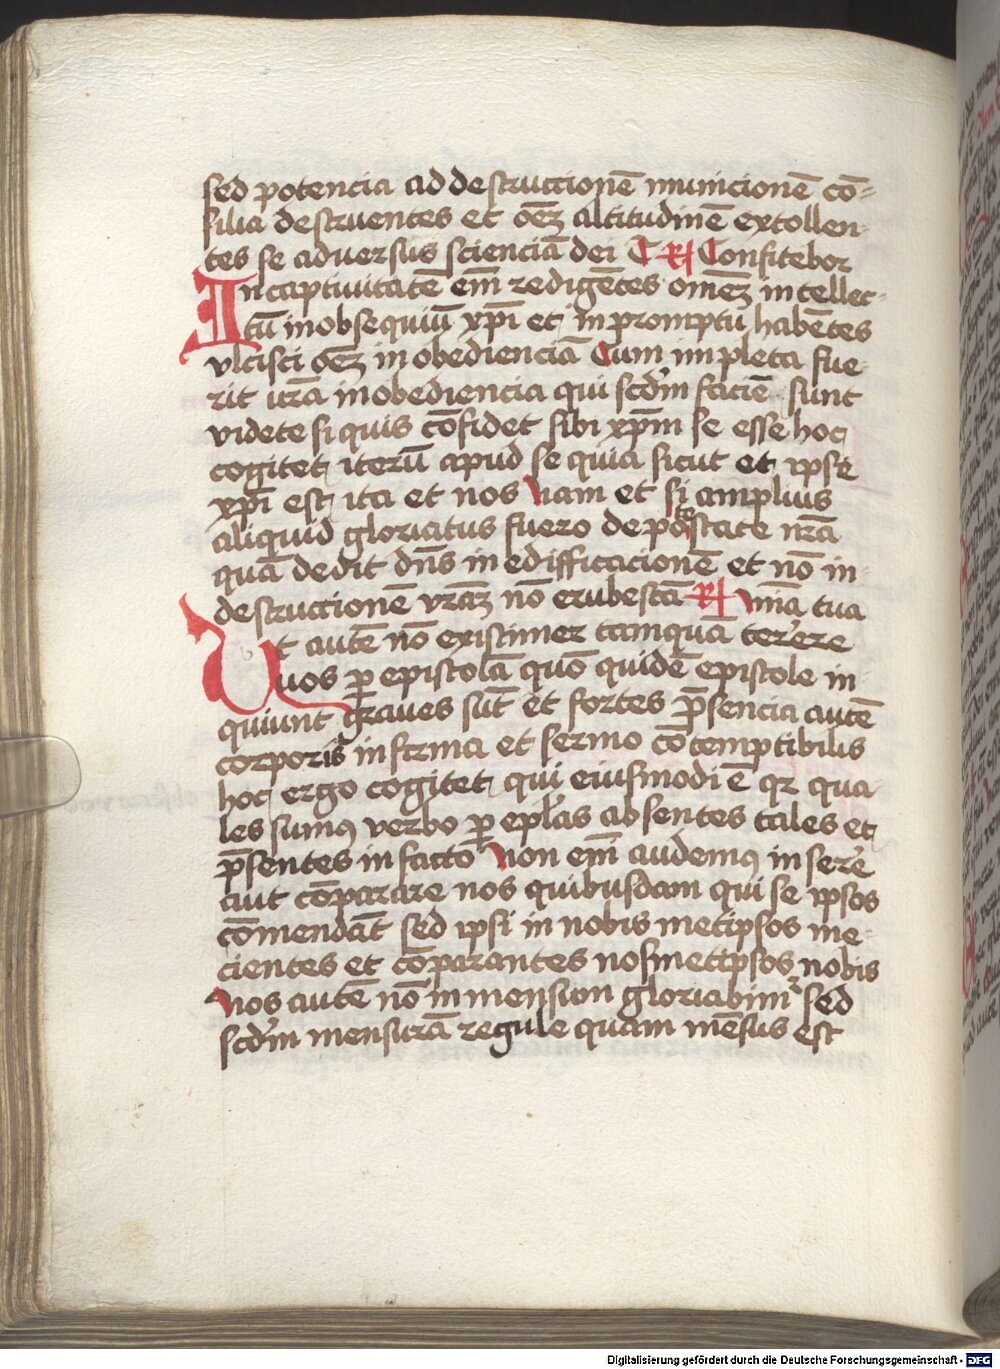 sed potencia ad destructionē municionē cō⸗
silia destruentes et oēꝫ altitudinē extollen⸗
tes se aduersus scienciā dei C℟ Confitebor
In captiuitatē em̄ redigētes om̄eꝫ intellec⸗
tū in obsequiū xp̄i et in promptu habētes
vlcisci oēꝫ in obedienciā Cum impleta fue⸗
rit vr̄a in obediencia qui scd̄m faciē sunt
videte si quis cōfidet sibi xp̄m se esse hoc
cogitet iterū apud se quia sicut et ipse
xp̄i est ita et nos Nam et si amplius
aliquid gloriatus fuero de potestate nr̄a
quā dedit dn̄s in edifficacionē et nō in
destructionē vr̄aꝫ nō erubescā ℟ Oīa tua
Vt autē nō existimer tamquā terrere
vos ꝑ epistolā quō quidē epistole in⸗
quiunt graues sūt et fortes p̄sencia autē
corporis infirma et sermo cōtemptibilis
hoc ergo cogitet qui eiusmodi ē qꝛ qua⸗
les sumꝯ verbo ꝑ epl̄as absentes tales et
p̄sentes in facto Non em̄ audemꝯ inserē
aut cōparare nos quibusdam qui se ipsos
cōmendāt sed ipsi in nobis metipsos me⸗
cientes et cōparantes nosmetipsos nobis
Nos autē nō in mensum gloriabimꝰ sed
scd̄m mensurā regule quam mēsus est
Digitalisierung gefördert durch die Deutsche Forschungsgemeinschaft - DFG